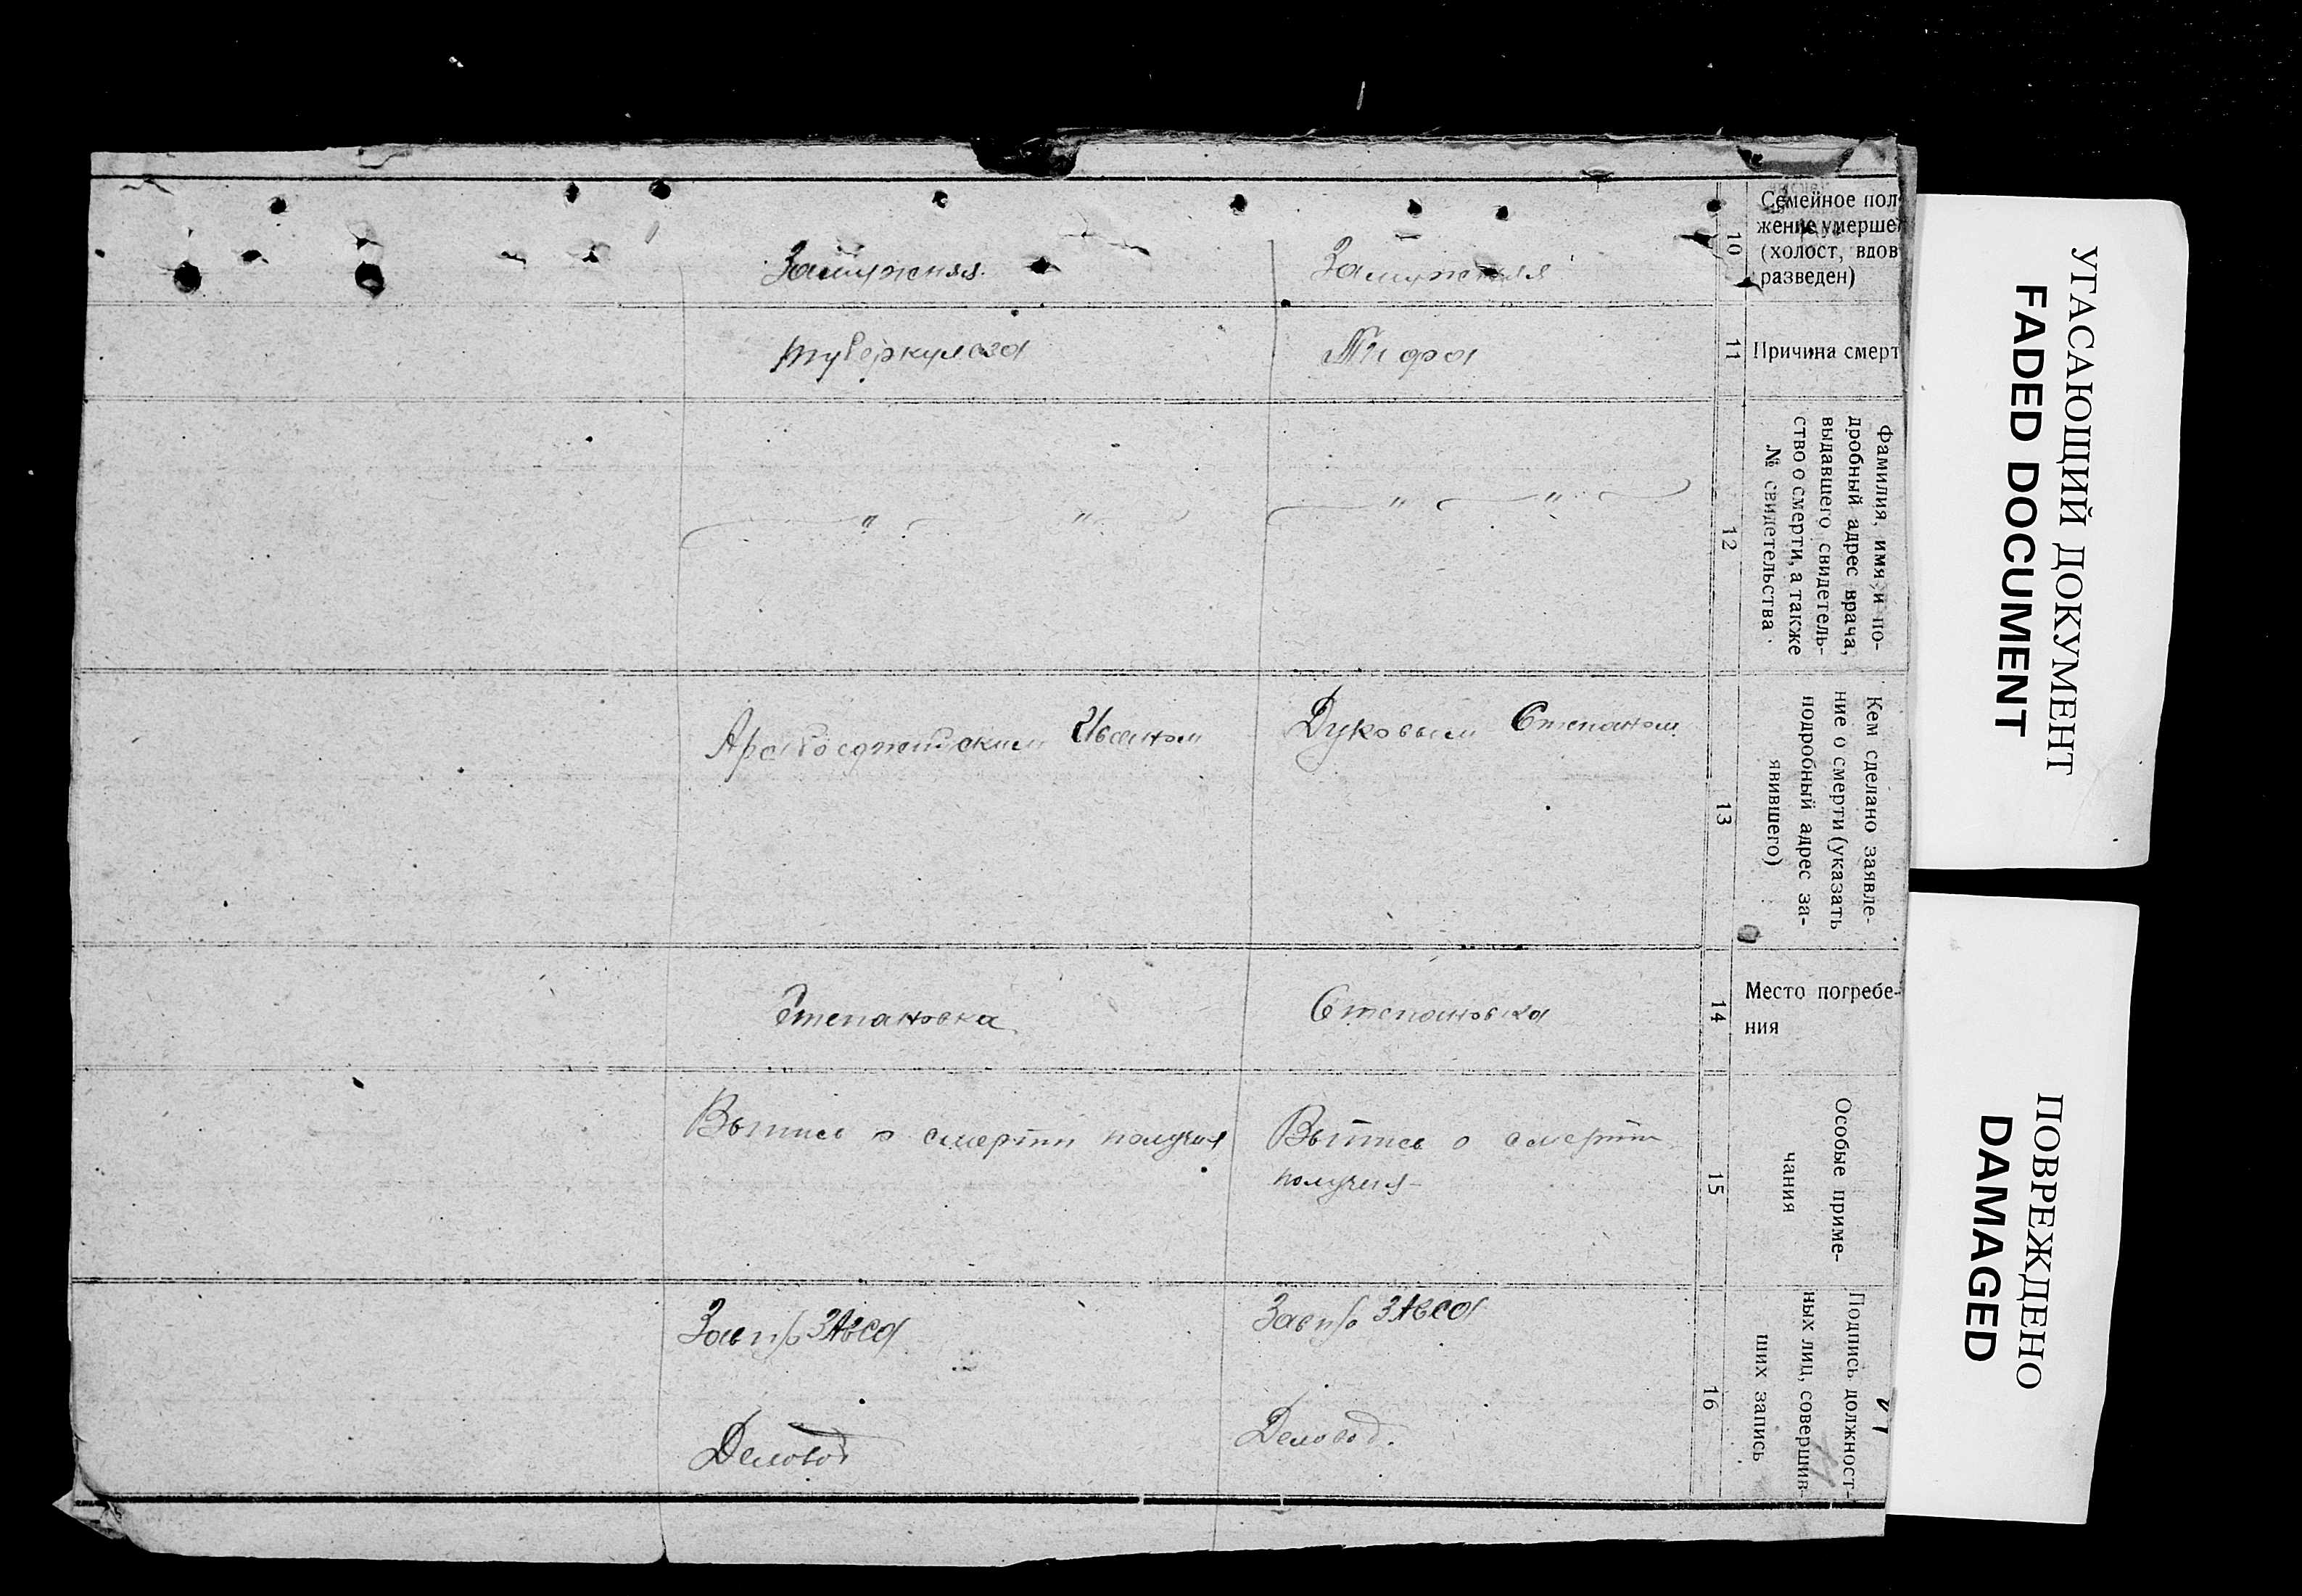 Семейное пол
жение умерше
(холост, вдов
разведен)
10
Замужняя
Замужняя
Причина смерт
11
Тифа
туберкулеза
Фамилия, имя и по-
дробный адрес врача,
выдавшего свидетель-
ство о смерти, а также
№ свидетельства
12
" "
" "
Кем сделано заявле-
ние о смерти (указать
подробный адрес за-
явившего)
13
Дуковым Степаном
Иваном
Место погребе-
ния
14
Степановка
Степановка
Особые приме-
чания
15
Выпись о смерти
получил
Выпись о смерти получил
Подпись должност-
ных лиц, совершив-
ших запись
16
Зав п/о ЗАГСа
Деловод.
Зав п/о ЗАГСа
Деловод
УГАСАЮЩИЙ ДОКУМЕНТ
FADED DOCUMENT
ПОВРЕЖДЕНО
DAMAGED